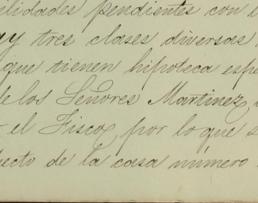 elidades pendientes con e
y tres clases diversas
que tienen hipoteca espe
de los Señores Martinez
el Fisco, por lo que s
ecto de la casa número